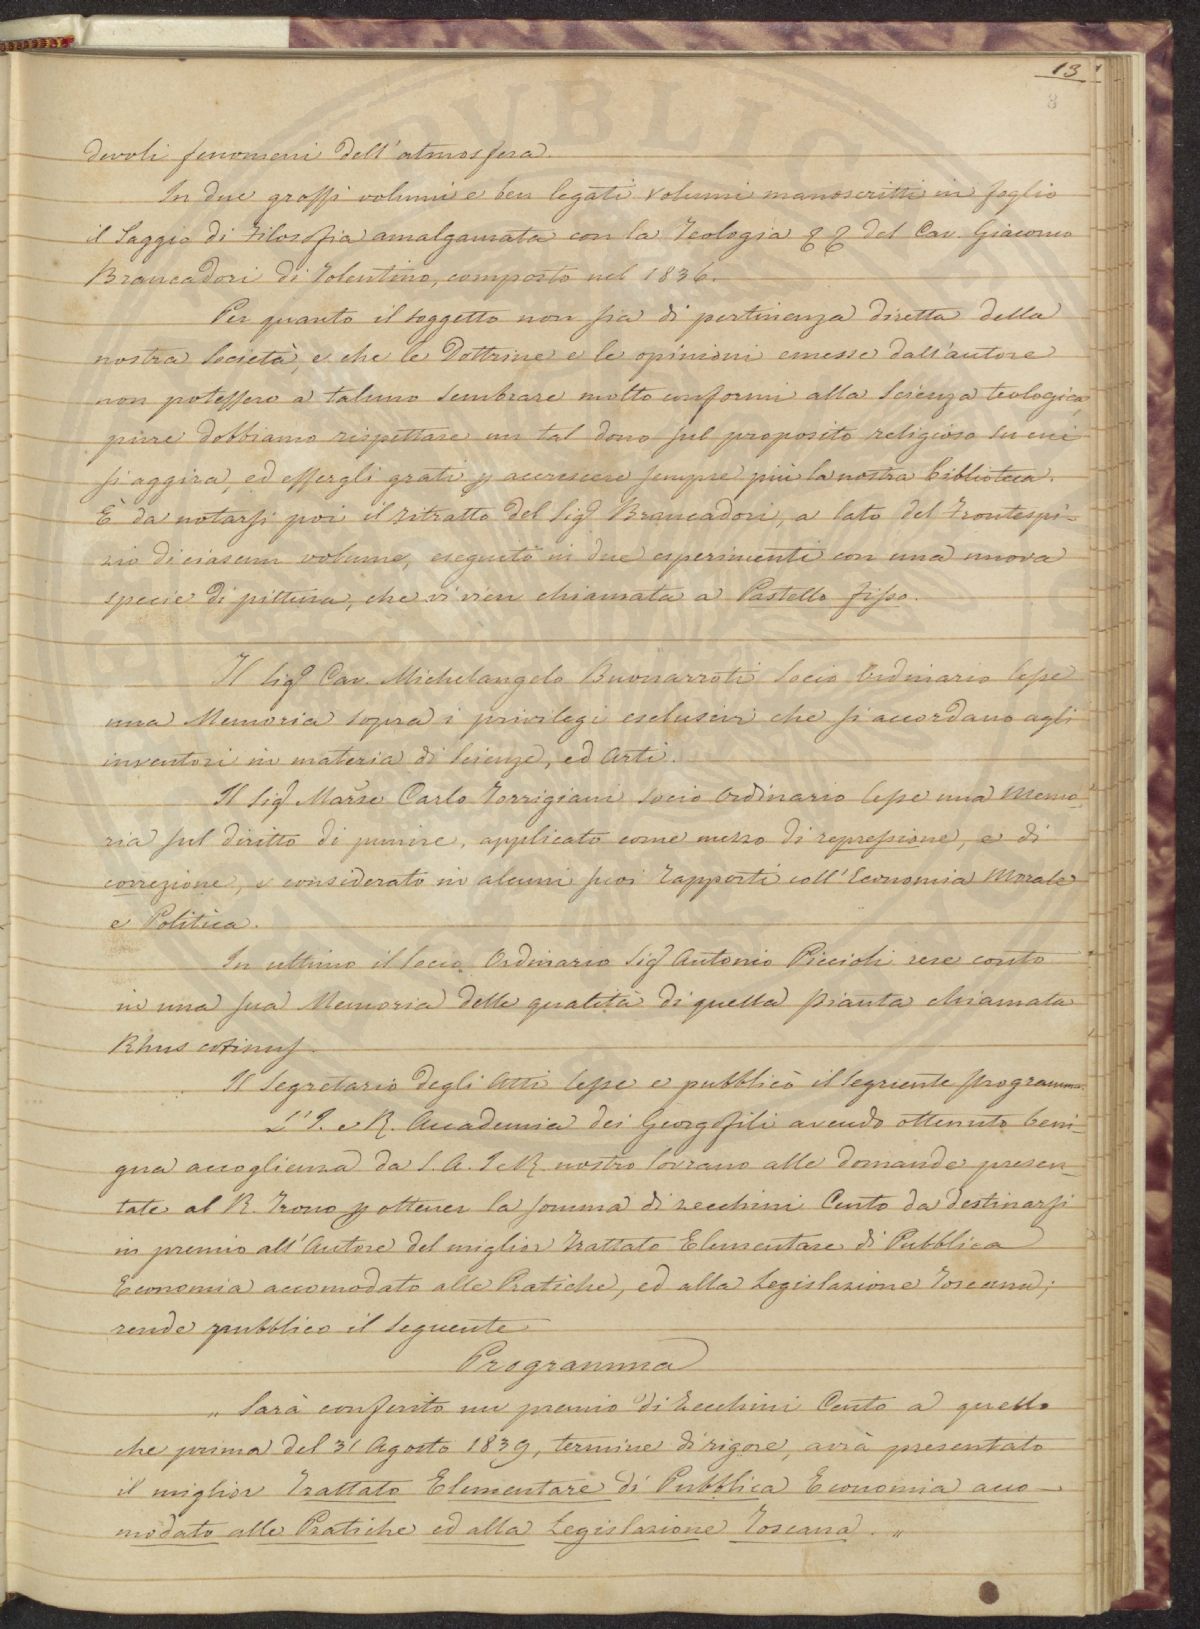 13
8
devoli fenomeni dell'atmosfera.
In due grossi volumi e ben legati volumi manoscritti in foglio
il Saggio di Filosofia amalgamata con la Teologia del Cav. Giacomo
Brancadori di Tolentino, composto nel 1836.
Per quanto il soggetto non sia di pertinenza diretta della
nostra Società, e che le Dottrine e le opinioni emesse dall'autore
non potessero a taluno sembrare molto conformi alla Scienza teologica,
pure dobbiamo rispettare un tal dono sul proposito religioso su cui
si aggira, ed essergli grati p accrescere sempre più la nostra biblioteca.
È da notarsi poi il ritratto del Sigr Brancadori, a lato del Frontespi-
zio di ciascun volume, eseguito in due esperimenti con una nuova
specie di pittura, che vi vien chiamata a Pastello fisso.
Il Sigr Cav. Michelangelo Buonarroti Socio Ordinario lesse
una Memoria sopra i privilegi esclusivi che si accordano agli
inventori in materia di Scienze, ed Arti.
Il Sigr Marse Carlo Torrigiani Socio Ordinario lesse una Memo-
ria sul diritto di punire, applicato come mezzo di repressione, e di
correzione, e considerato in alcuni suoi rapporti coll'Economia Morale
e Politica.
In ultimo il Socio Ordinario Sigr Antonio Piccioli rese conto
in una sua Memoria delle qualità di quella pianta chiamata
Rhus cotinus.
Il Segretario degli Atti lesse e pubblicò il seguente programma.
L'I. e R. Accademia dei Georgofili avendo ottenuto beni-
gna accoglienza da S. A. I. e R. nostro Sovrano alle domande presen-
tate al R. Trono p ottener la somma di zecchini Cento da destinarsi
in premio all'Autore del miglior Trattato Elementare di Pubblica
Economia accomodato alle Pratiche, ed alla Legislazione Toscana;
rende pubblico il seguente
Programma
„ Sarà conferito un premio di Zecchini Cento a quello
che prima del 31 Agosto 1839, termine di rigore, avrà presentato
il miglior Trattato Elementare di Pubblica Economia acco-
modato alle Pratiche ed alla Legislazione Toscana. „